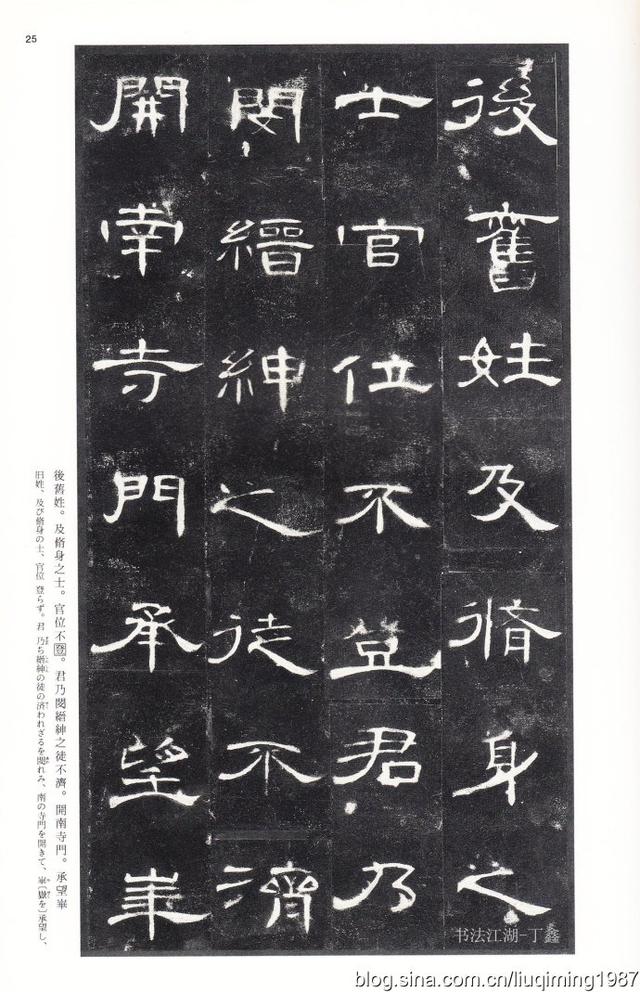 25
後舊姓及脩身之
士官位不登君乃
閔縉紳之徒不濟
開南寺門承望崋
後舊姓。及脩身之士。官位不登。君乃閔縉紳之徒不濟。開南寺門。承望崋
旧姓、及び脩身の士、官位 登らず。君 乃ち縉紳の徒の済われざるを閔れみ、南の寺門を開きて、崋〔嶽を〕承望し、
书法江湖-丁鑫
blog.sina.com.cn/liuqiming1987